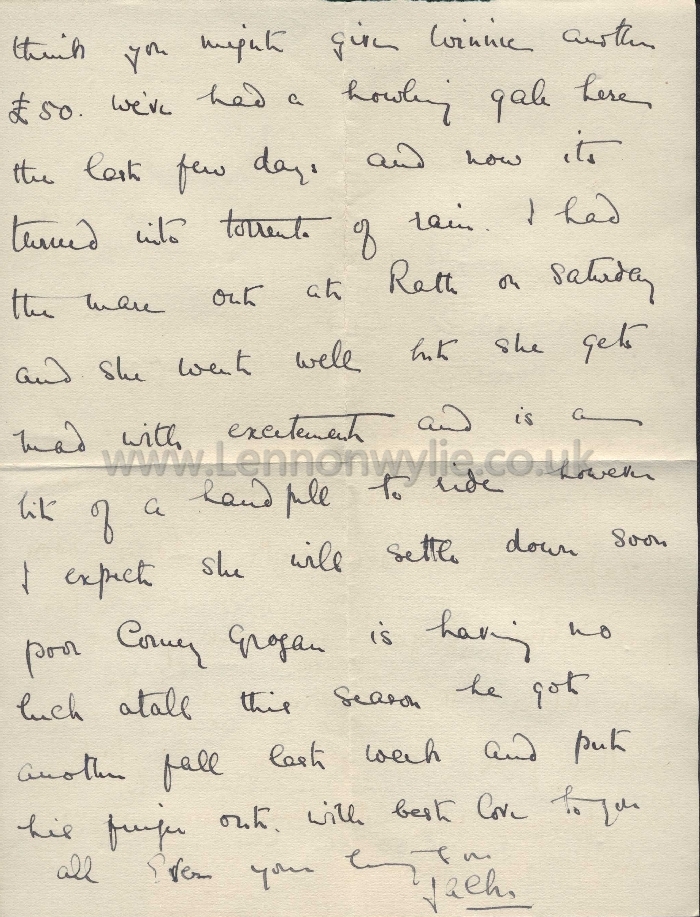 think you might give Winnie another
£50. We've had a howling gale here
the last few days and now its
turned into torrents of rain. I had
the mare out at Rath on Saturday
and she went well but she gets
mad with excitement and is a
www.Lennonwylie.co.uk
bit of a handfull to ride however
I expect she will settle down soon
poor Corney Grogan is having no
luck atall this season he got
another fall last week and put
his finger out. With best love to you
all Ever your loving son
Jack.